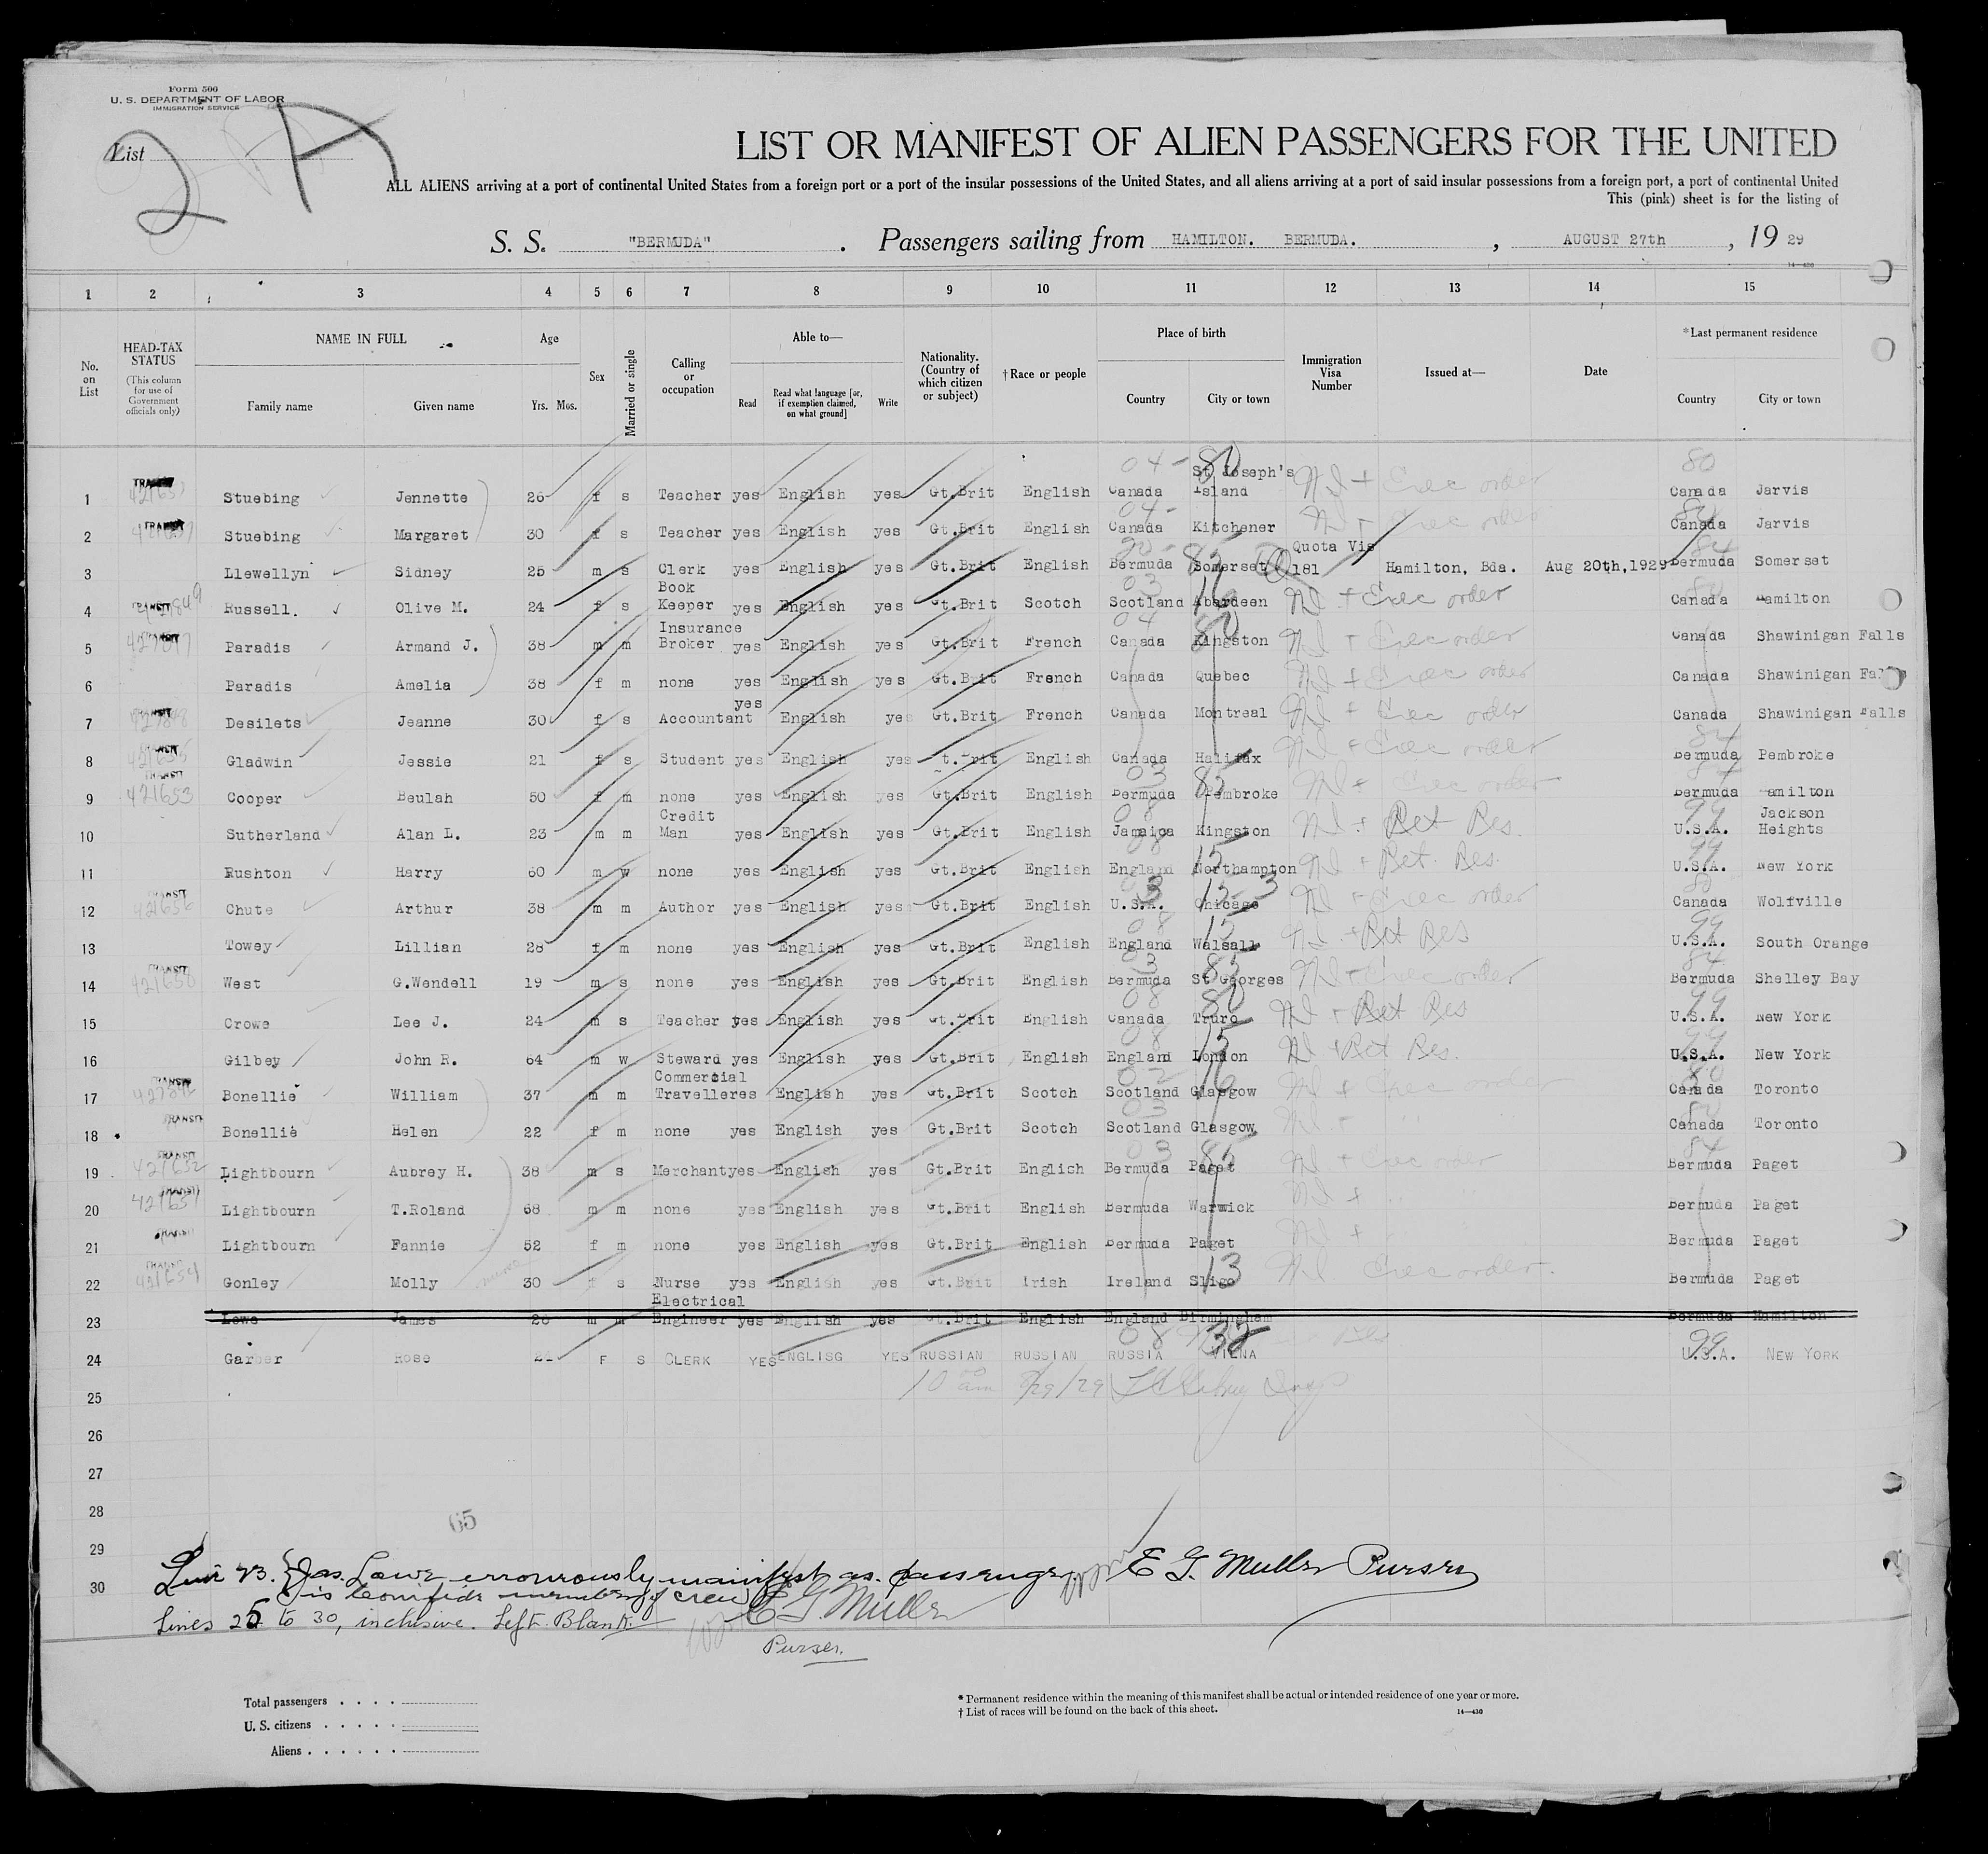 Form 500
U. S. DEPARTMENT OF LABOR
IMMIGRATION SERVICE
List 2 A
LIST OR MANIFEST OF ALIEN PASSENGERS FOR THE UNITED
ALL ALIENS arriving at a port of continental United States from a foreign port or a port of the insular possessions of the United States, and all aliens arriving at a port of said insular possessions from a foreign port, a port of continental United
This (pink) sheet is for the listing of
S. S. "BERMUDA". Passengers sailing from HAMILTON. BERMUDA. , AUGUST 27th , 19 29
14-430
1 2 3 4 5 6 7 8 9 10 11 12 13 14 15
No. on List
HEAD-TAX STATUS
(This column for use of Government officials only)
NAME IN FULL
Family name Given name
Age
Yrs. Mos.
Sex
Married or single
Calling or occupation
Able to—
Read
Read what language [or, if exemption claimed, on what ground]
Write
Nationality. (Country of which citizen or subject)
† Race or people
Place of birth
Country City or town
Immigration Visa Number
Issued at—
Date
* Last permanent residence
Country City or town
1 Stuebing Jennette 26 f s Teacher yes English yes Gt.Brit English Canada St Joseph's Island Exec order Canada Jarvis
2 Stuebing Margaret 30 f s Teacher yes English yes Gt.Brit English Canada Kitchener Exec order Canada Jarvis
3 Llewellyn Sidney 25 m s Clerk yes English yes Gt.Brit English Bermuda Somerset Quota Vis 181 Hamilton, Bda. Aug 20th,1929 Bermuda Somerset
4 Russell. Olive M. 24 f s Book Keeper yes English yes Gt.Brit Scotch Scotland Aberdeen Exec order Canada Hamilton
5 Paradis Armand J. 38 m m Insurance Broker yes English yes Gt.Brit French Canada Kingston Exec order Canada Shawinigan Falls
6 Paradis Amelia 38 f m none yes English yes Gt.Brit French Canada Quebec Exec order Canada Shawinigan Falls
7 Desilets Jeanne 30 f s Accountant yes English yes Gt.Brit French Canada Montreal Exec order Canada Shawinigan Falls
8 Gladwin Jessie 21 f s Student yes English yes Gt.Brit English Canada Halifax Exec order Bermuda Pembroke
9 421653 Cooper Beulah 50 f m none yes English yes Gt.Brit English Bermuda Pembroke Exec order Bermuda Hamilton
10 Sutherland Alan L. 23 m m Credit Man yes English yes Gt.Brit English Jamaica Kingston Ret Res. U.S.A. Jackson Heights
11 Rushton Harry 60 m w none yes English yes Gt.Brit English England Northampton Ret. Res. U.S.A. New York
12 Chute Arthur 38 m m Author yes English yes Gt.Brit English U.S.A. Chicago Exec order Canada Wolfville
13 Towey Lillian 28 f m none yes English yes Gt.Brit English England Walsall Ret Res U.S.A. South Orange
14 West G.Wendell 19 m s none yes English yes Gt.Brit English Bermuda St Georges Exec order Bermuda Shelley Bay
15 Crowe Lee J. 24 m s Teacher yes English yes Gt.Brit English Canada Truro Ret Res U.S.A. New York
16 Gilbey John R. 64 m w Steward yes English yes Gt.Brit English England London Ret Res. U.S.A. New York
17 Bonellie William 37 m m Commercial Travelleres English yes Gt.Brit Scotch Scotland Glasgow Exec order Canada Toronto
18 Bonellie Helen 22 f m none yes English yes Gt.Brit Scotch Scotland Glasgow Canada Toronto
19 421652 Lightbourn Aubrey H. 38 m s Merchantyes English yes Gt.Brit Englich Bermuda Paget Exec order Bermuda Paget
20 421651 Lightbourn T.Roland 68 m m none yes English yes Gt.Brit English Bermuda Warwick Bermuda Paget
21 Lightbourn Fannie 52 f m none yes English yes Gt.Brit English Bermuda Paget Bermuda Paget
22 421654 Gonley Molly 30 f s Nurse yes English yes Gt.Brit Irish Ireland Sligo Exec order. Bermuda Paget
23 Lowe James 26 m m Electrical Engineer yes English yes Gt.Brit English England Birmingham Bermuda Hamilton
24 Garber Rose F S CLERK YES ENGLISG YES RUSSIAN RUSSIAN RUSSIA VILNA U.S.A. NEW YORK
25 10 00 am 8/29/29
26
27
28
65
29
30
Line 23. {Jas. Lowe erronrously manifest as. passenger. E G. Muller Purser
is bonifide member of crew} E G. Muller
Lines 25 to 30, inclusive. Left. Blank.
Purser.
Total passengers . . . .
U. S. citizens . . . . .
Aliens . . . . . .
* Permanent residence within the meaning of this manifest shall be actual or intended residence of one year or more.
† List of races will be found on the back of this sheet.
14-430